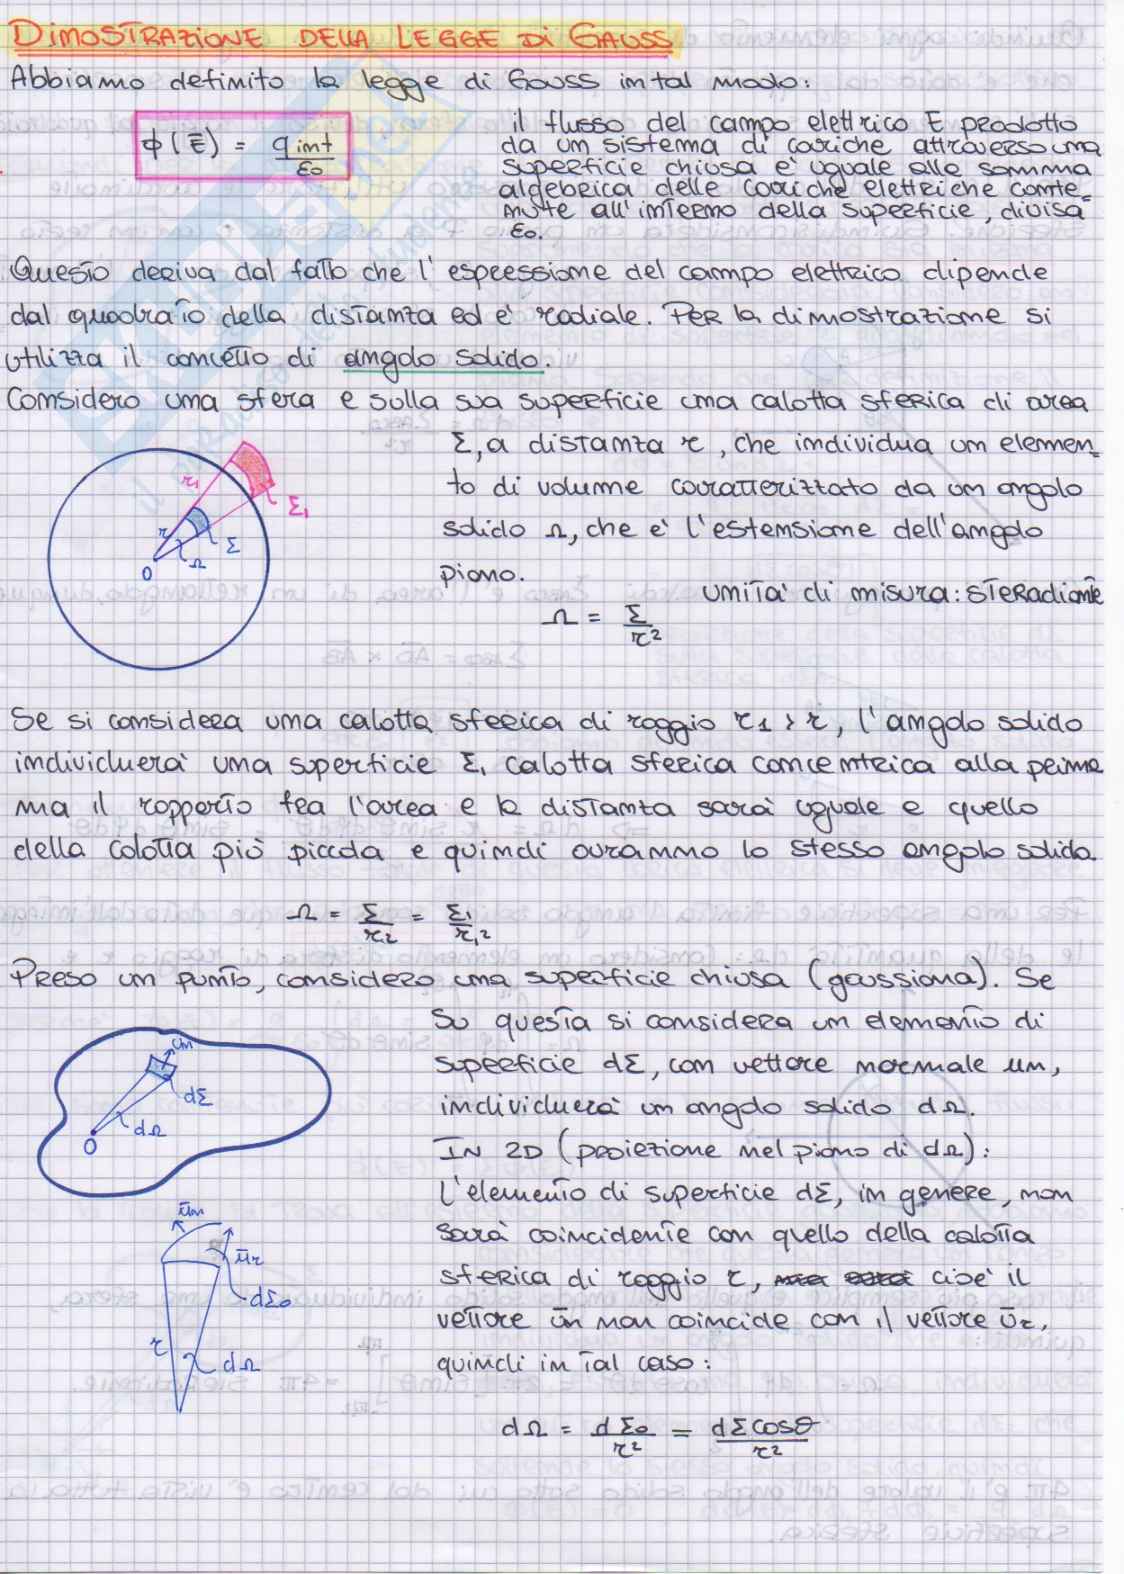 DIMOSTRAZIONE DELLA LEGGE DI GAUSS
Abbiamo definito la legge di Gauss in tal modo:
ϕ(Ē) = q int / ε₀
il flusso del campo elettrico E prodotto
da un sistema di cariche attraverso una
superficie chiusa e' uguale alla somma
algebrica delle cariche elettriche conte=
nute all'interno della superficie, divisa
ε₀.
Questo deriva dal fatto che l'espressione del campo elettrico dipende
dal quadrato della distanza ed e' radiale. Per la dimostrazione si
utilizza il concetto di angolo solido.
Considero una sfera e sulla sua superficie una calotta sferica di area
Σ, a distanza r, che individua un elemen=
to di volume caratterizzato da un angolo
solido Ω, che e' l'estensione dell'angolo
piano.
unità di misura: steradiante
Ω = Σ / r²
r₁
Σ₁
r
Σ
Ω
O
Se si considera una calotta sferica di raggio r₁ > r, l'angolo solido
individuerà una superficie Σ₁ calotta sferica concentrica alla prima
ma il rapporto fra l'area e la distanza sarà uguale a quello
della calotta più piccola e quindi avrammo lo stesso angolo solido.
Ω = Σ / r² = Σ₁ / r₁²
Preso un punto, considero una superficie chiusa (gaussiana). Se
su questa si considera un elemento di
superficie dΣ, con vettore normale un,
individuerà un angolo solido dΩ.
IN 2D (proiezione nel piano di dΩ):
L'elemento di superficie dΣ, in genere, non
sarà coincidente con quello della calotta
sferica di raggio r, cioe' il
vettore ūn non coincide con il vettore ūr,
quindi in tal caso:
dΩ = dΣ₀ / r² = dΣ cosθ / r²
un
dΣ
dΩ
O
ūn
ūr
dΣ₀
r
dΩ